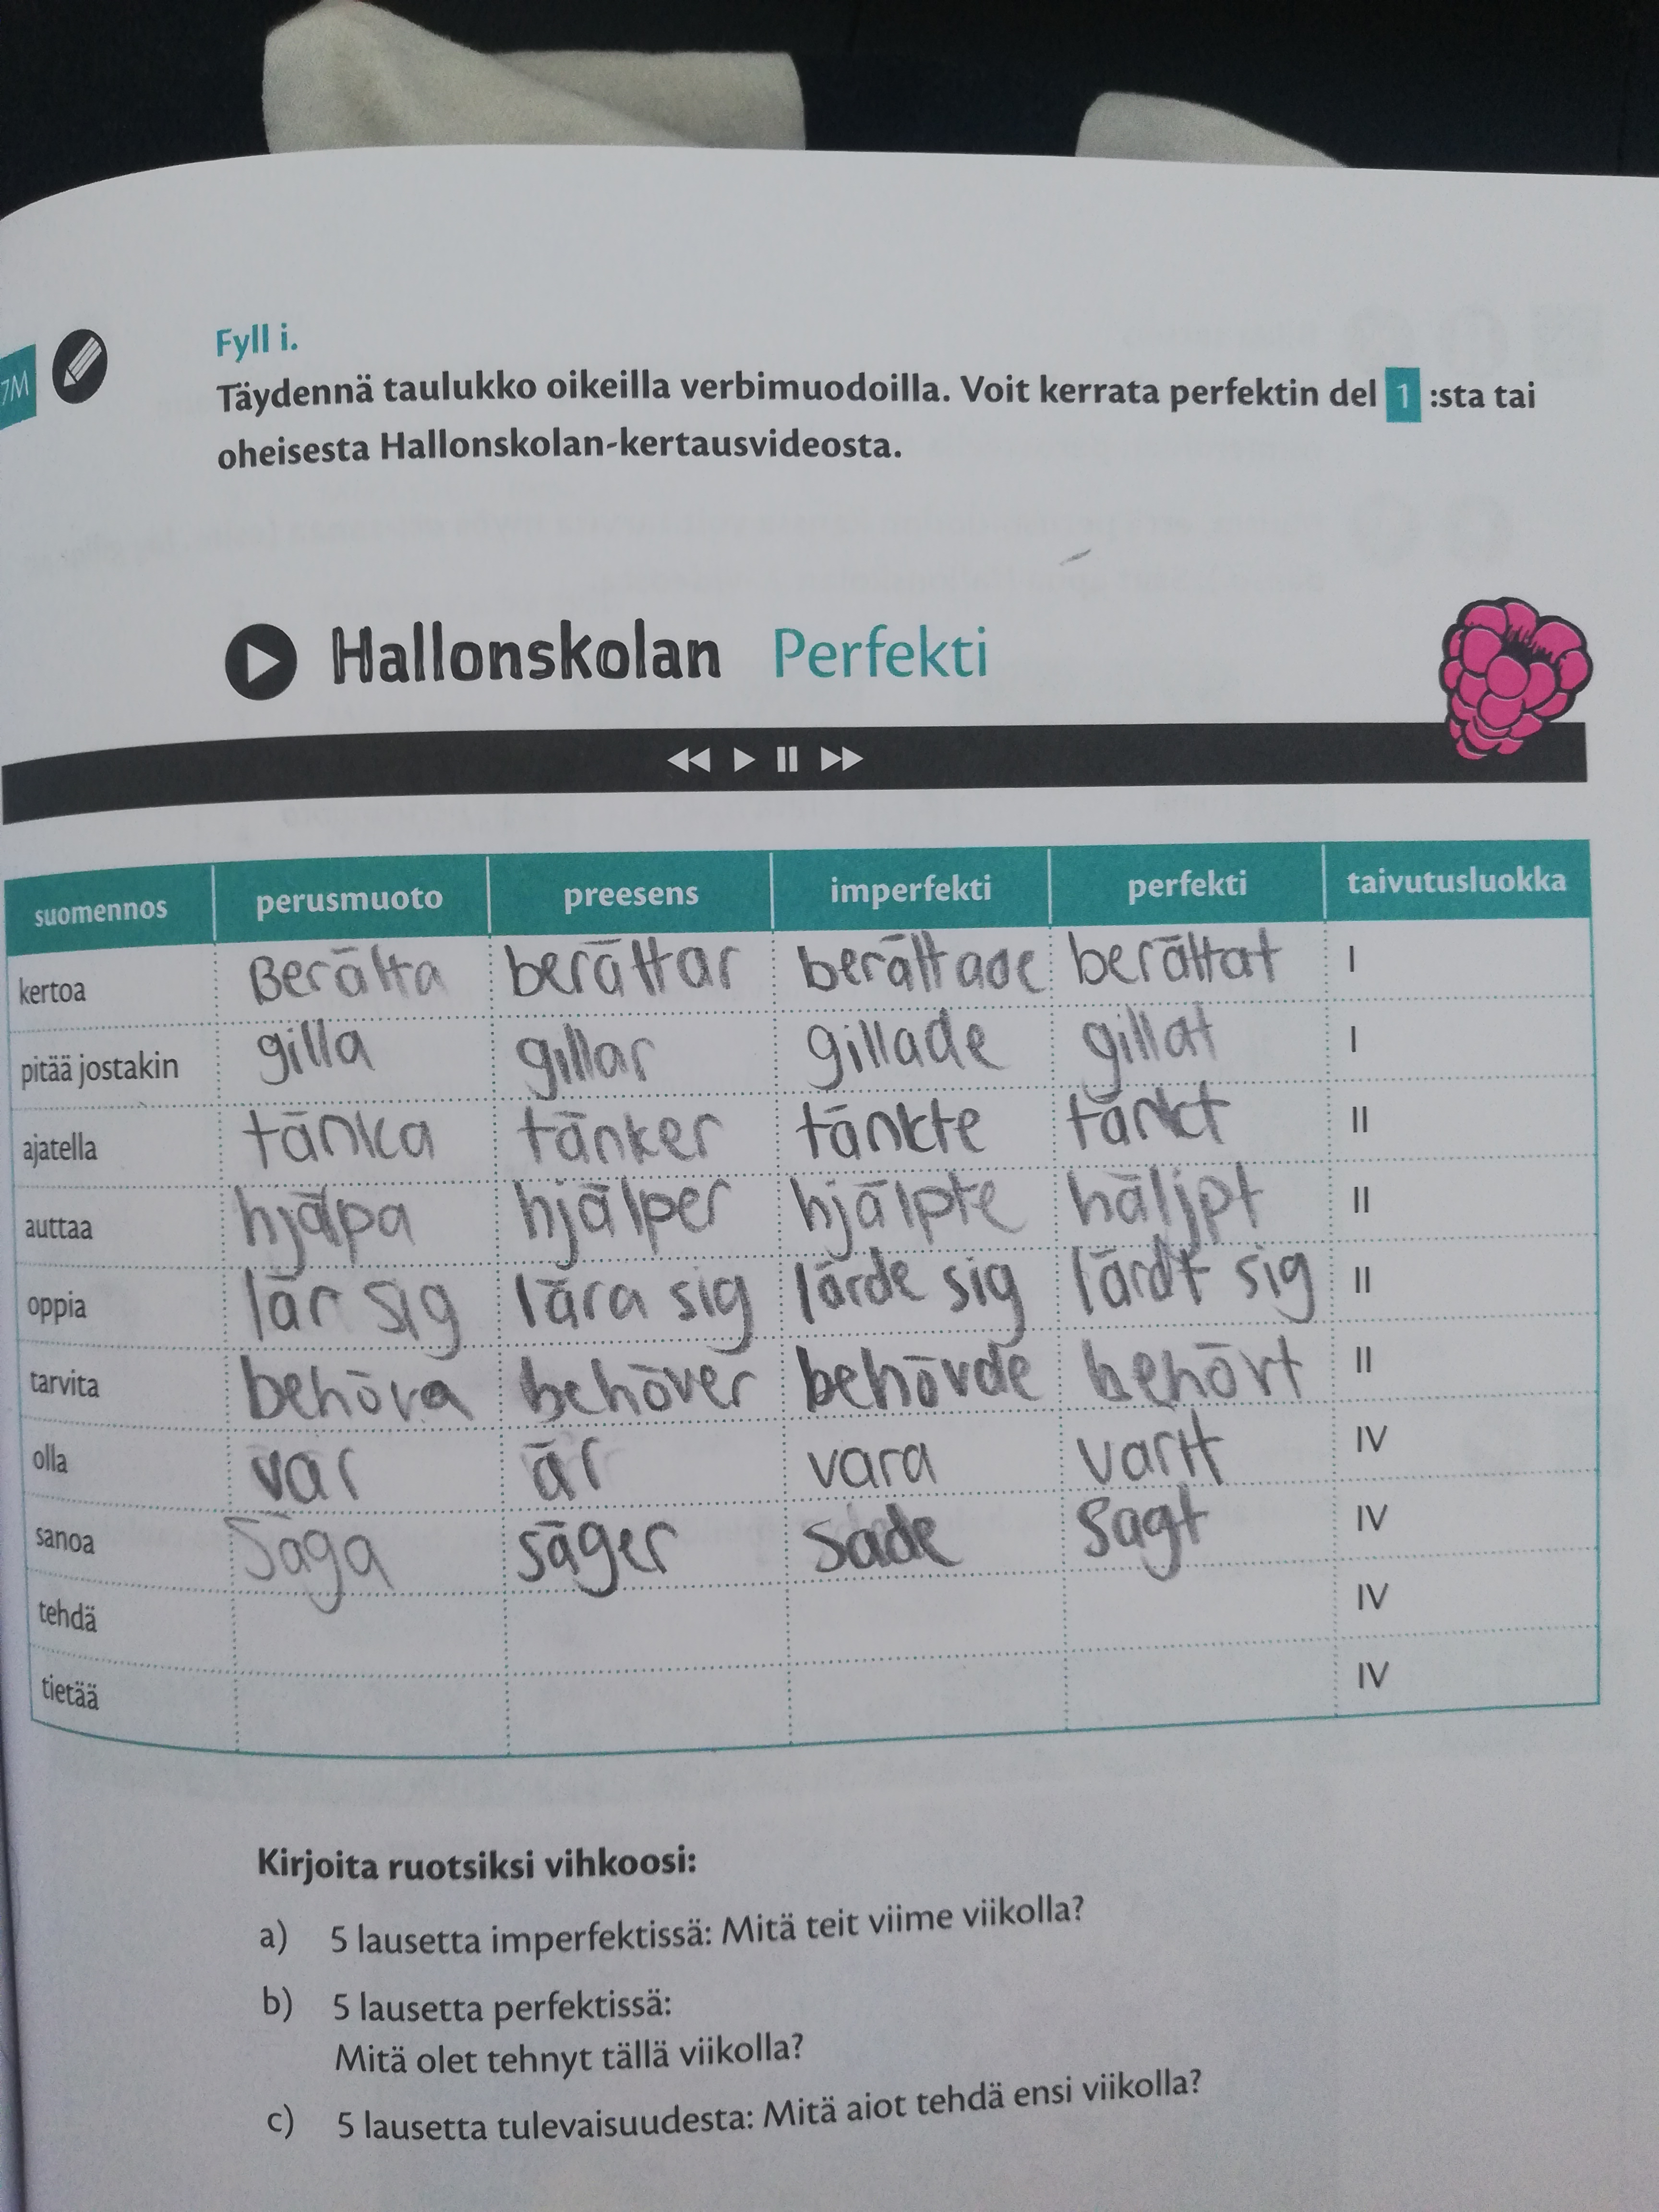 7M
Fyll i.
Täydennä taulukko oikeilla verbimuodoilla. Voit kerrata perfektin del 1 :sta tai
oheisesta Hallonskolan-kertausvideosta.
Hallonskolan Perfekti
suomennos perusmuoto preesens imperfekti perfekti taivutusluokka
kertoa Berätta berättar berättade berättat I
pitää jostakin gilla gillar gillade gillat I
ajatella tänka tänker tänkte tänkt II
auttaa hjälpa hjälper hjälpte häljpt II
oppia lär sig lära sig lärde sig lärdt sig II
tarvita behöva behöver behövde behövt II
olla var är vara varit IV
sanoa Säga säger sade sagt IV
tehdä IV
tietää IV
Kirjoita ruotsiksi vihkoosi:
a) 5 lausetta imperfektissä: Mitä teit viime viikolla?
b) 5 lausetta perfektissä:
Mitä olet tehnyt tällä viikolla?
c) 5 lausetta tulevaisuudesta: Mitä aiot tehdä ensi viikolla?